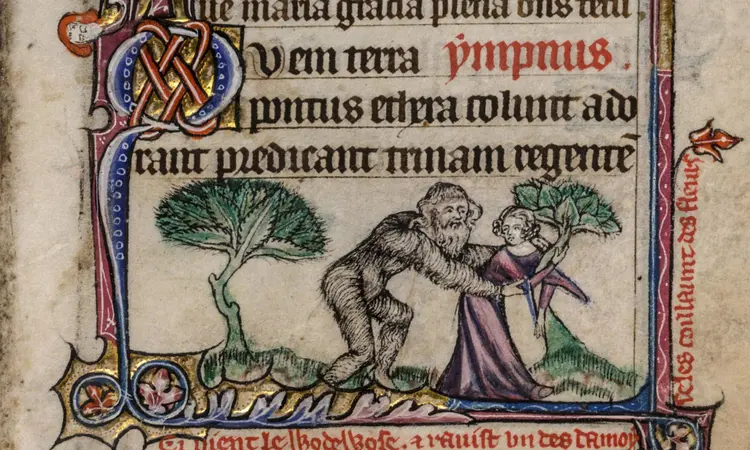 Aue maria gracia plena dns tecu
Quem terra ympnus.
pontus ethera colunt ado
rant predicant trinam regentē
Ci vient le Wodewose. & ravist un des damoy
seles coillaunt des fleurs